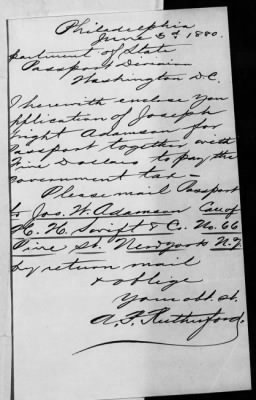 Philadelphia
June 3d, 1880.
partment of State
Passport Division
Washington D.C.
I herewith enclose you
pplication of Joseph
right Adamson for
Passport together with
Five Dollars to pay the
overnment tax—
Please mail Passport
to Jos. W. Adamson Care of
H. Swift & C. No. 66
Pine St. New York N.Y.
by return mail
& oblige
Your obt. st.
A. F. Rutherford.